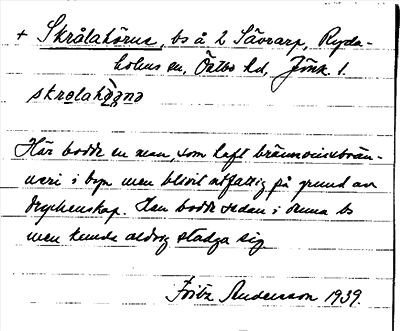 + Skrålahörne, bs å 2 Sävrarp, Ryda-
holms sn, Östbo hd, Jönk. l.
skrolahö̀ɳnə
Här bodde en man, som haft brännvinsbrän-
neri i byn men blivit utfattig på grund av
dryckenskap. Han bodde sedan i denna bs
men kunde aldrig stadga sig
Fritz Andersson 1939.